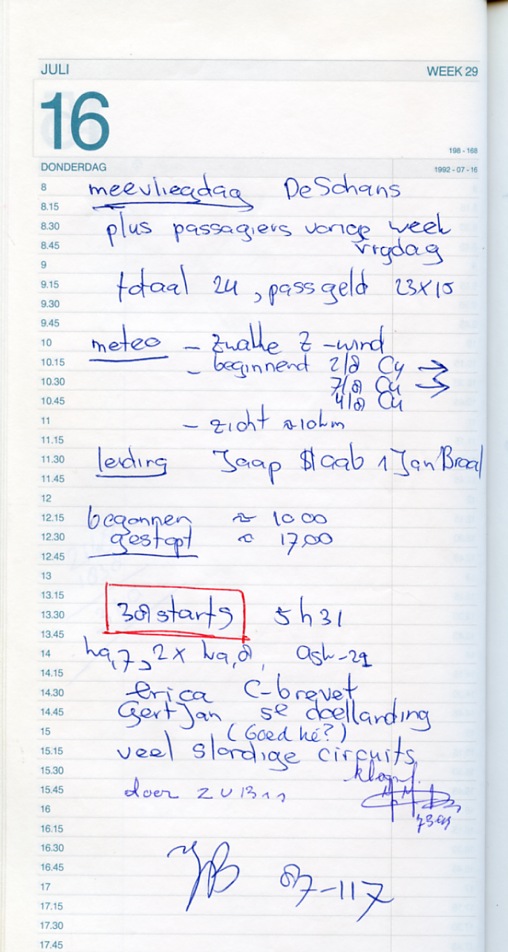 JULI WEEK 29
16
198 - 168
DONDERDAG 1992 - 07 - 16
8 meevliegdag De Schans
8.15
8.30 plus passagiers vorige week
8.45 vrijdag
9
9.15 totaal 24, passgeld 23x15
9.30
9.45
10 meteo - Zwakke Z-wind
10.15 - beginnend 2/8 Cu →
10.30 7/8 Cu →
10.45 4/8 Cu
11 - zicht ≈10km
11.15
11.30 leiding Jaap Staab 1 Jan Braal
11.45
12
12.15 begonnen ≈ 10.00
12.30 gestopt ≈ 17.00
12.45
13
13.15
13.30 38 starts 5h31
13.45
14 ka,7, 2x ka,8, ask-21
14.15
14.30 Erica C-brevet
14.45 Gert Jan 5e doellanding
15 (Goed hè?)
15.15 veel slordige circuits
15.30
15.45 door ZUB
16
16.15
16.30
16.45 JB 87-117
17
17.15
17.30
17.45